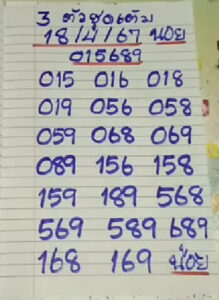 3 ตัวชุดเต็ม
18/1/67 น้อย
015689
015 016 018
019 056 058
059 068 069
089 156 158
159 189 568
569 589 689
168 169 น้อย